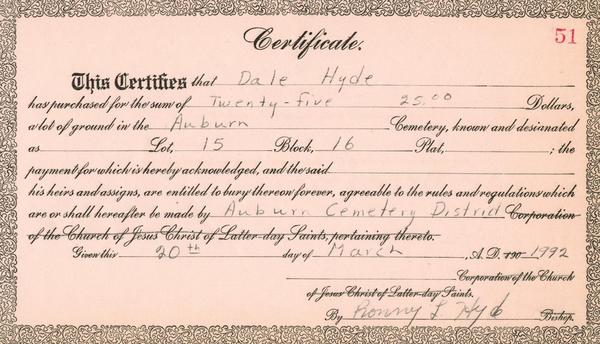 51
Certificate.
This Certifies that Dale Hyde
has purchased for the sum of Twenty-five 25.00 Dollars,
a lot of ground in the Auburn Cemetery, known and designated
as Lot, 15 Block, 16 Plat, ; the
payment for which is hereby acknowledged, and the said
his heirs and assigns, are entitled to bury thereon forever, agreeable to the rules and regulations which
are or shall hereafter be made by Auburn Cemetery District Corporation
of the Church of Jesus Christ of Latter-day Saints, pertaining thereto.
Given this 20th day of March , A.D. 190 1992
Corporation of the Church
of Jesus Christ of Latter-day Saints.
By Ronny L Hyde Bishop.